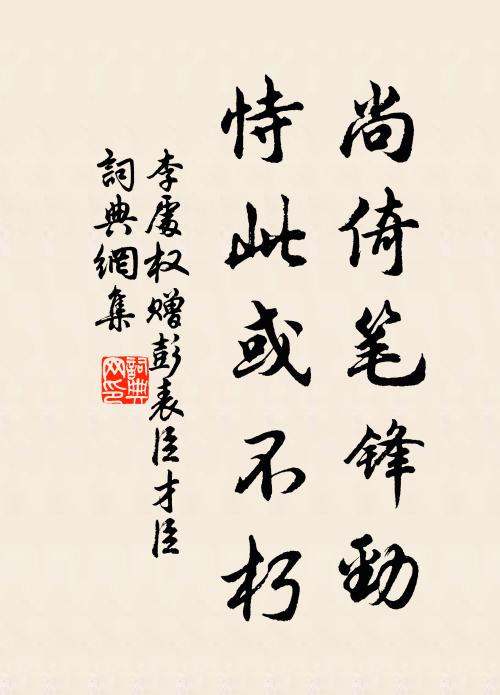 尚倚笔锋勁
恃此或不朽
李處权赠彭表臣才臣
詞典網集
詞典
网印